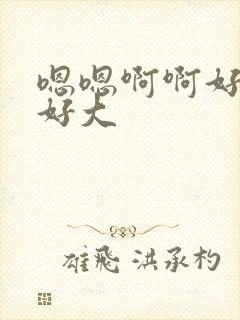 嗯嗯啊啊好
好大
雄飛 洪承杓